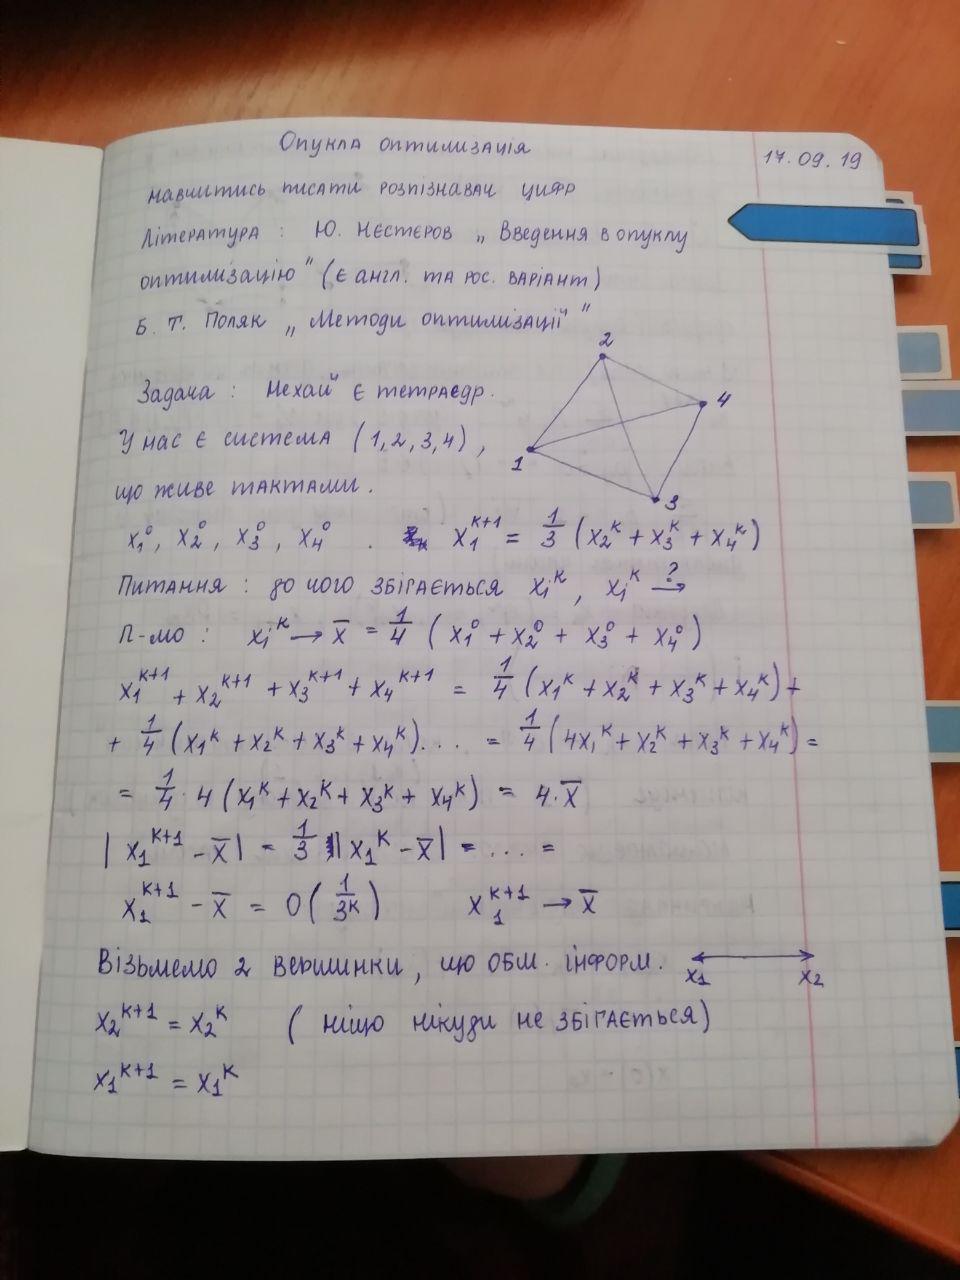 Опукла оптилизація
17.09.19
навчитись писати розпізнавач цифр
Література : Ю. Нєстєров „ Введення в опуклу
оптилизацію" (є англ. та рос. варіант)
Б. Т. Поляк „ Методи оптилізації"
2
Задача : Нехай є тетраедр.
4
У нас є система (1,2,3,4) ,
1
що живе тактами.
3
x₁⁰, x₂⁰, x₃⁰, x₄⁰ . x₁ᵏ⁺¹ = 1/3 (x₂ᵏ + x₃ᵏ + x₄ᵏ)
Питання : до чого збігається xᵢᵏ , xᵢᵏ →?
П-мо : xᵢᵏ → x̄ = 1/4 (x₁⁰ + x₂⁰ + x₃⁰ + x₄⁰)
x₁ᵏ⁺¹ + x₂ᵏ⁺¹ + x₃ᵏ⁺¹ + x₄ᵏ⁺¹ = 1/4 (x₁ᵏ + x₂ᵏ + x₃ᵏ + x₄ᵏ) +
+ 1/4 (x₁ᵏ + x₂ᵏ + x₃ᵏ + x₄ᵏ) . . . = 1/4 (4x₁ᵏ + x₂ᵏ + x₃ᵏ + x₄ᵏ) =
= 1/4 · 4 (x₁ᵏ + x₂ᵏ + x₃ᵏ + x₄ᵏ) = 4 · x̄
| x₁ᵏ⁺¹ - x̄ | = 1/3 | x₁ᵏ - x̄ | = . . . =
x₁ᵏ⁺¹ - x̄ = O( 1/3ᵏ ) x₁ᵏ⁺¹ → x̄
Візьмемо 2 вершинки, що обм. інформ.
x₁ x₂
x₂ᵏ⁺¹ = x₂ᵏ ( ніщо нікуди не збігається)
x₁ᵏ⁺¹ = x₁ᵏ